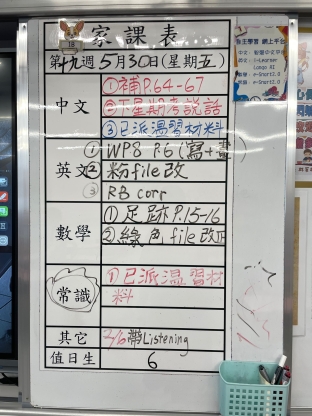 家課表
18
第十九週5月30日(星期五)
中文
①補P.64-67
②下星期考說話
③已派溫習材料
英文
① WP8 P.6 (寫+
② 粉file改
③ RB corr
數學
①足跡P.15-16
②綠色file改正
常識
①已派溫習材
料
其它
2/6帶Listening
值日生
6
自主學習 網上平台